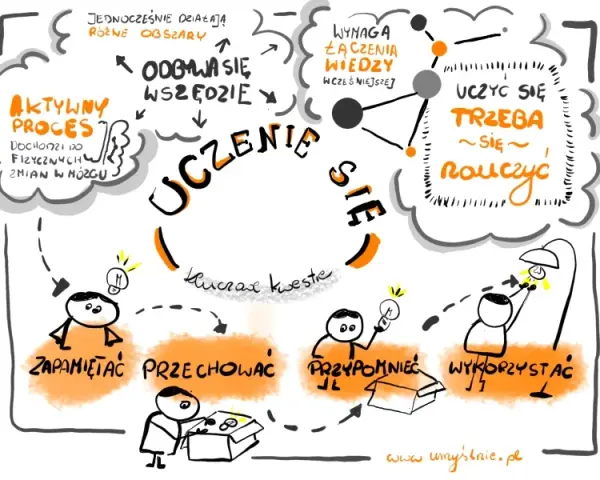 JEDNOCZEŚNIE DZIAŁAJĄ
RÓŻNE OBSZARY
ODBYWA SIĘ
WSZĘDZIE
WYMAGA
ŁĄCZENIA
WIEDZY
WCZEŚNIEJSZEJ
UCZYĆ SIĘ
TRZEBA
~ SIĘ ~
NAUCZYĆ
AKTYWNY
PROCES
DOCHODZI DO
FIZYCZNYCH
ZMIAN W MÓZGU
UCZENIE SIĘ
kluczowe kwestie
ZAPAMIĘTAĆ
PRZECHOWAĆ
PRZYPOMNIEĆ
WYKORZYSTAĆ
www.umyślnie.pl